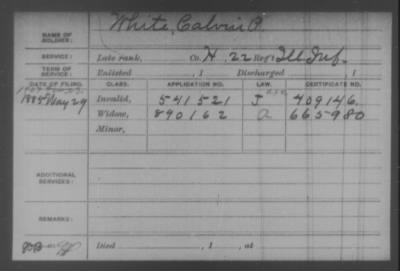 NAME OF SOLDIER: White, Calvin P.
SERVICE: Late rank, Co. H, 22 Reg't Ill Inf.
TERM OF SERVICE: Enlisted , 1 Discharged , 1
DATE OF FILING. CLASS. APPLICATION NO. LAW. CERTIFICATE NO.
1885 May 29 Invalid, 541521 J 409146.
Widow, 890162 a 665980
Minor,
ADDITIONAL SERVICES:
REMARKS:
Died , 1 , at